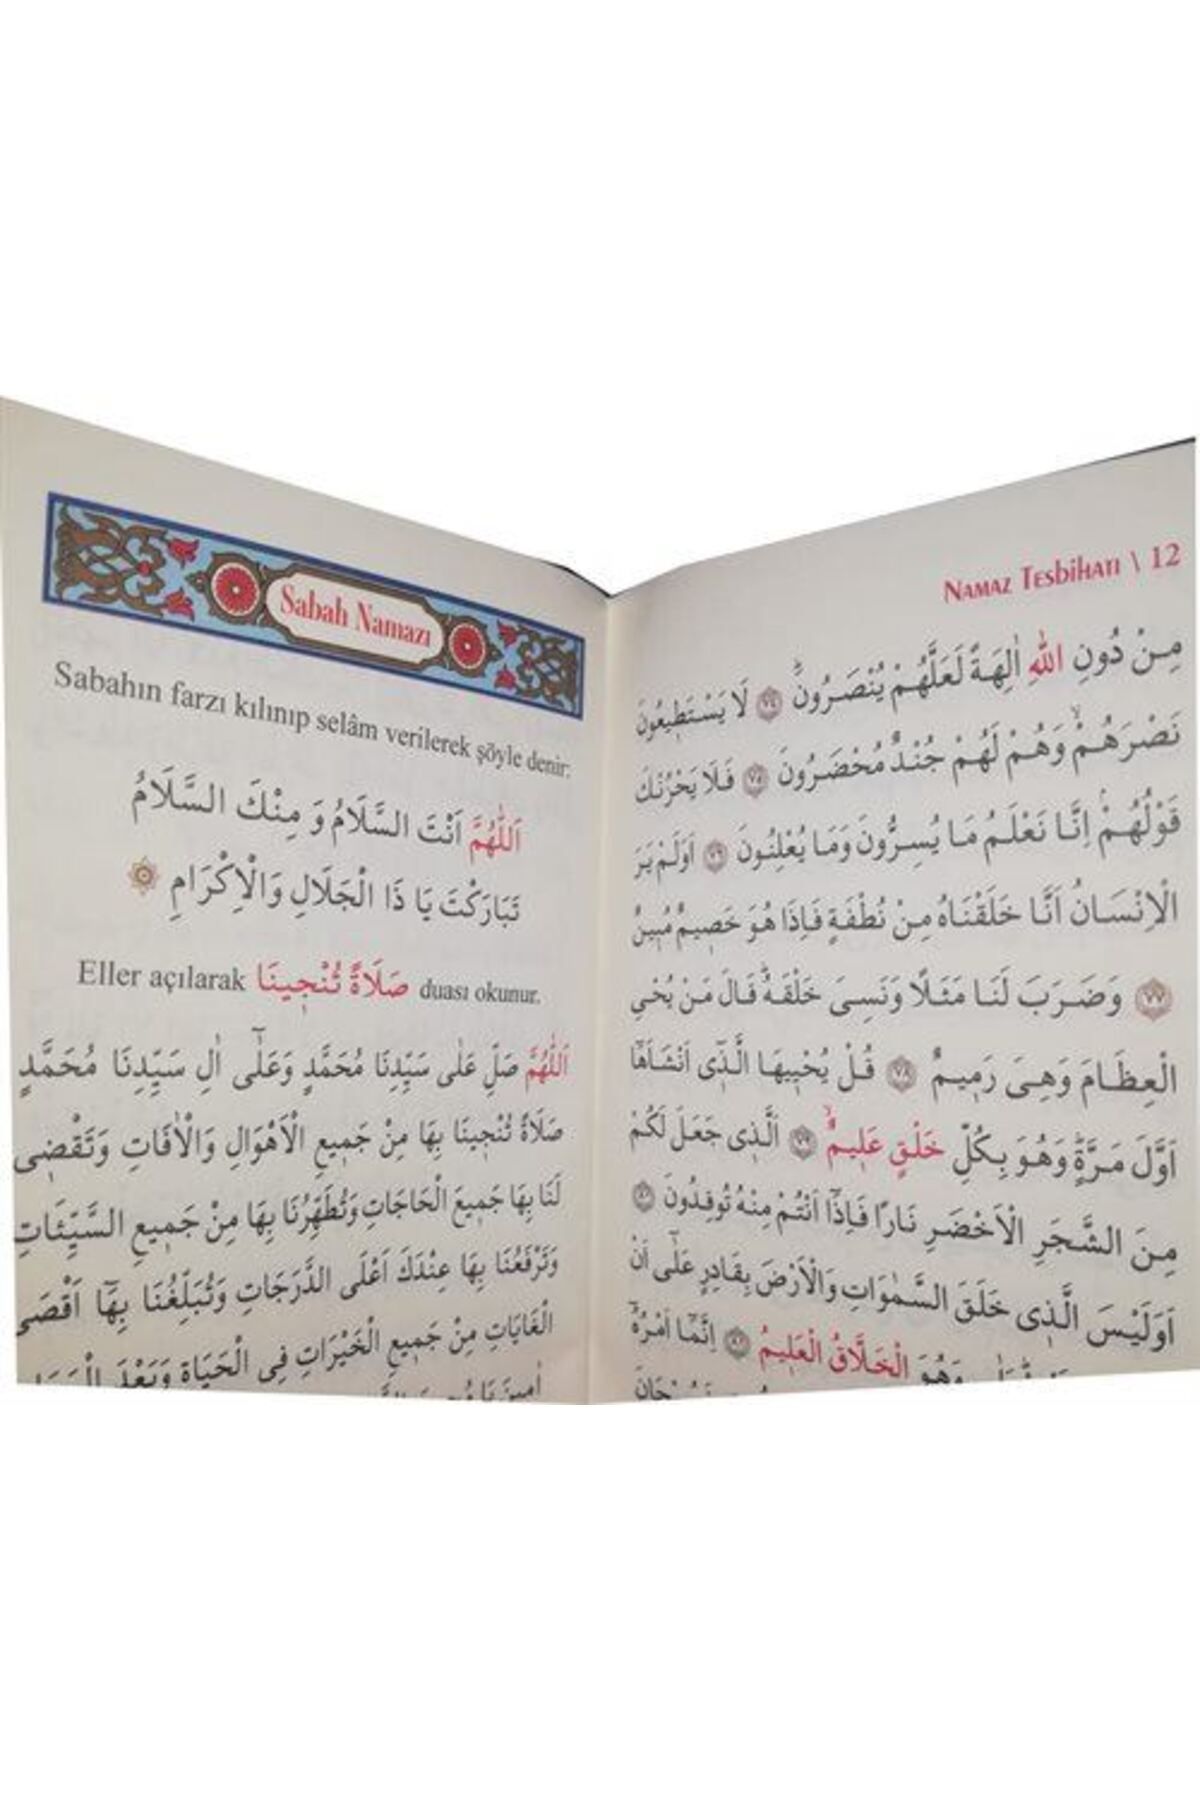 Sabah Namazı
Sabahın farzı kılınıp selâm verilerek şöyle denir:
اَللّٰهُمَّ اَنْتَ السَّلَامُ وَ مِنْكَ السَّلَامُ
تَبَارَكْتَ يَا ذَا الْجَلَالِ وَالْاِكْرَامِ
Eller açılarak صَلَاةً تُنْجِينَا duası okunur.
اَللّٰهُمَّ صَلِّ عَلٰى سَيِّدِنَا مُحَمَّدٍ وَعَلٰٓى اٰلِ سَيِّدِنَا مُحَمَّدٍ
صَلَاةً تُنْجِينَا بِهَا مِنْ جَمِيعِ الْاَهْوَالِ وَالْاٰفَاتِ وَتَقْضِى
لَنَا بِهَا جَمِيعَ الْحَاجَاتِ وَتُطَهِّرُنَا بِهَا مِنْ جَمِيعِ السَّيِّئَاتِ
وَتَرْفَعُنَا بِهَا عِنْدَكَ اَعْلَى الدَّرَجَاتِ وَتُبَلِّغُنَا بِهَٓا اَقْصَى
الْغَايَاتِ مِنْ جَمِيعِ الْخَيْرَاتِ فِى الْحَيَاةِ وَبَعْدَ
اٰمِينَ يَا
NAMAZ TESBİHATI \ 12
مِنْ دُونِ اللّٰهِ اٰلِهَةً لَعَلَّهُمْ يُنْصَرُونَۜ ﴿٧٤﴾ لَا يَسْتَطِيعُونَ
نَصْرَهُمْۙ وَهُمْ لَهُمْ جُنْدٌ مُحْضَرُونَ ﴿٧٥﴾ فَلَا يَحْزُنْكَ
قَوْلُهُمْۢ اِنَّا نَعْلَمُ مَا يُسِرُّونَ وَمَا يُعْلِنُونَ ﴿٧٦﴾ اَوَلَمْ يَرَ
الْاِنْسَانُ اَنَّا خَلَقْنَاهُ مِنْ نُطْفَةٍ فَاِذَا هُوَ خَصِيمٌ مُبِينٌ
﴿٧٧﴾ وَضَرَبَ لَنَا مَثَلًا وَنَسِىَ خَلْقَهُۜ قَالَ مَنْ يُحْىِ
الْعِظَامَ وَهِىَ رَمِيمٌ ﴿٧٨﴾ قُلْ يُحْيِيهَا الَّذِٓى اَنْشَاَهَٓا
اَوَّلَ مَرَّةٍۜ وَهُوَ بِكُلِّ خَلْقٍ عَلِيمٌۙ ﴿٧٩﴾ اَلَّذِى جَعَلَ لَكُمْ
مِنَ الشَّجَرِ الْاَخْضَرِ نَارًا فَاِذَٓا اَنْتُمْ مِنْهُ تُوقِدُونَ ﴿٨٠﴾
اَوَلَيْسَ الَّذِى خَلَقَ السَّمٰوَاتِ وَالْاَرْضَ بِقَادِرٍ عَلٰٓى اَنْ
وَهُوَ الْخَلَّاقُ الْعَلِيمُ ﴿٨١﴾ اِنَّمَٓا اَمْرُهُٓ